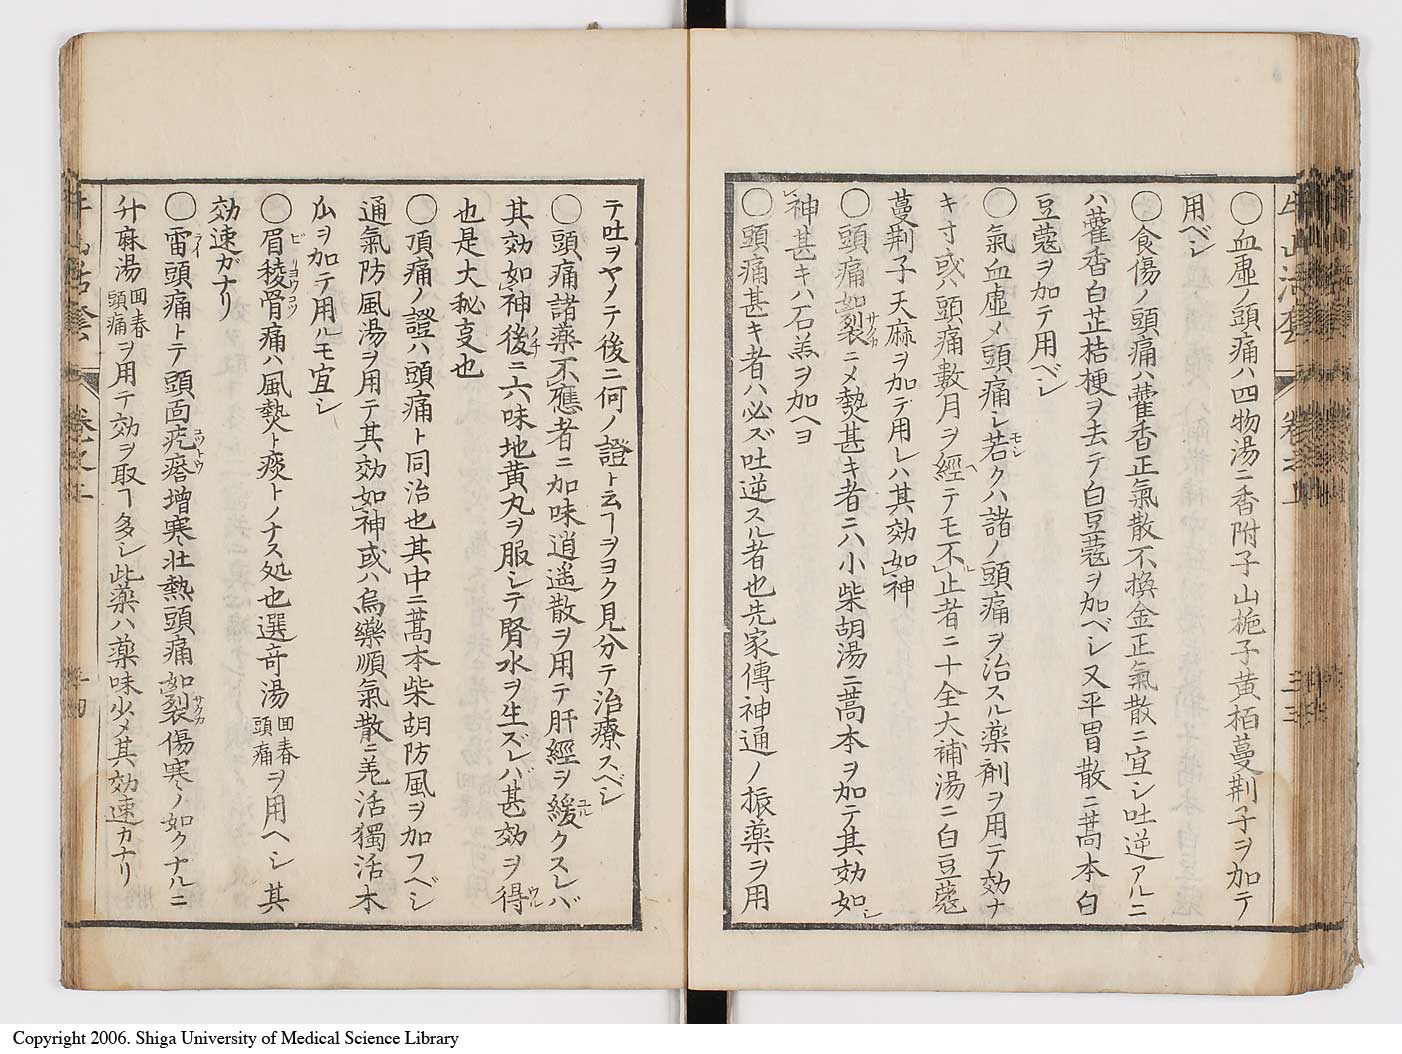 〇血虚ノ頭痛ハ四物湯ニ香附子山梔子黄栢蔓荆子ヲ加テ
用ベシ
〇食傷ノ頭痛ハ藿香正氣散不換金正氣散ニ宜シ吐逆アルニ
ハ藿香白芷桔梗ヲ去テ白豆蔲ヲ加ベシ又平胃散ニ藁本白
豆蔲ヲ加テ用ベシ
〇氣血虚〆頭痛シ若クハ諸ノ頭痛ヲ治スル薬剤ヲ用テ効ナ
キ寸或ハ頭痛數月ヲ經テモ不止者ニ十全大補湯ニ白豆蔲
蔓荆子天麻ヲ加テ用レハ其効如神
〇頭痛如裂ニ〆勢甚キ者ニハ小柴胡湯ニ藁本ヲ加テ其効如
神甚キハ石羔ヲ加ヘヨ
〇頭痛甚キ者ハ必ズ吐逆スル者也先家傳神通ノ振薬ヲ用
テ吐ヲヤメテ後ニ何ノ證ト云ヿヲヨク見分テ治療スベシ
〇頭痛諸薬不應者ニ加味逍遥散ヲ用テ肝經ヲ緩クスレバ
其効如神後ニ六味地黄丸ヲ服シテ腎水ヲ生ズレバ甚効ヲ得
也是大秘叓也
〇頂痛ノ證ハ頭痛ト同治也其中ニ藁本柴胡防風ヲ加フベシ
通氣防風湯ヲ用テ其効如神或ハ烏藥順氣散ニ羌活獨活木
瓜ヲ加テ用ルモ宜シ
〇眉稜骨痛ハ風熱ト痰トノナス処也選竒湯回春頭痛ヲ用ヘシ其
効速ガナリ
〇雷頭痛トテ頭面疙瘩増寒壮熱頭痛如裂傷寒ノ如クナルニ
升麻湯回春頭痛ヲ用テ効ヲ取ヿ多シ此薬ハ薬味少〆其効速カナリ
牛山活套
卷之上
三三
牛山活套
卷之上
Copyright 2006. Shiga University of Medical Science Library